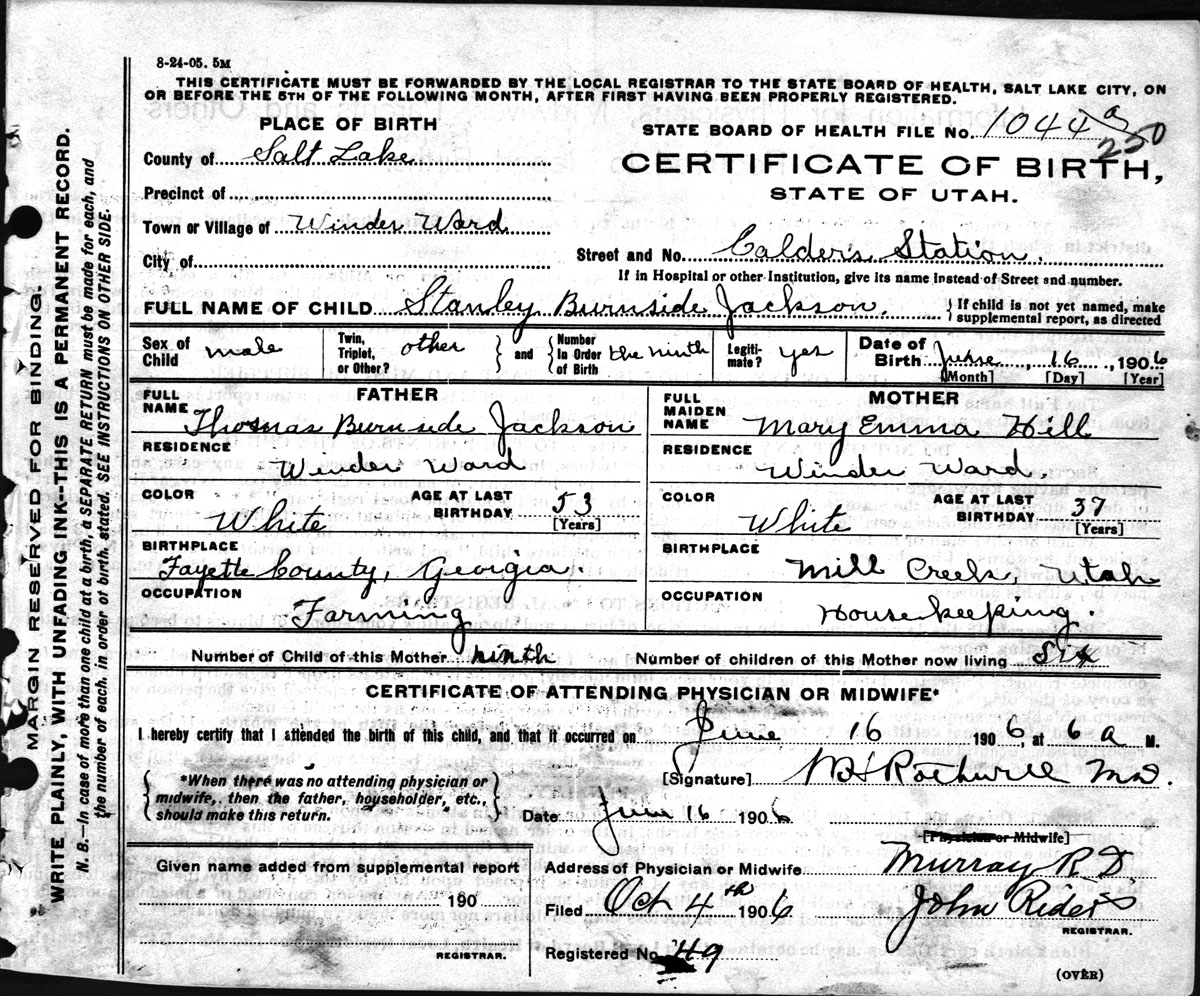 8-24-05. 5M
THIS CERTIFICATE MUST BE FORWARDED BY THE LOCAL REGISTRAR TO THE STATE BOARD OF HEALTH, SALT LAKE CITY, ON
OR BEFORE THE 5TH OF THE FOLLOWING MONTH, AFTER FIRST HAVING BEEN PROPERLY REGISTERED.
PLACE OF BIRTH
STATE BOARD OF HEALTH FILE No. 1044 a
250
County of Salt Lake
CERTIFICATE OF BIRTH,
STATE OF UTAH.
Precinct of
Town or Village of Winder Ward
City of
Street and No. Calders Station.
If in Hospital or other Institution, give its name instead of Street and number.
FULL NAME OF CHILD Stanley Burnside Jackson. } If child is not yet named, make
supplemental report, as directed
Sex of Child male Twin, Triplet, or Other? other } and { Number In Order of Birth the ninth Legiti-mate? yes Date of Birth June, 16, 1906
[Month] [Day] [Year]
FATHER
FULL NAME Thomas Burnside Jackson
RESIDENCE Winder Ward
COLOR White AGE AT LAST BIRTHDAY 53 [Years]
BIRTHPLACE Fayette County, Georgia.
OCCUPATION Farming
MOTHER
FULL MAIDEN NAME Mary Emma Hill
RESIDENCE Winder Ward.
COLOR White AGE AT LAST BIRTHDAY 37 [Years]
BIRTHPLACE Mill Creek, Utah
OCCUPATION House keeping.
Number of Child of this Mother ninth Number of children of this Mother now living six
CERTIFICATE OF ATTENDING PHYSICIAN OR MIDWIFE*
I hereby certify that I attended the birth of this child, and that it occurred on June 16 1906, at 6 a M.
{ *When there was no attending physician or
midwife, then the father, householder, etc.,
should make this return. }
[Signature] Rothwell MD.
Date June 16 1906
[Physician or Midwife]
Given name added from supplemental report
190
REGISTRAR.
Address of Physician or Midwife Murray R.D.
Filed Oct 4th 1906 John Rider
REGISTRAR.
Registered No. 49
(OVER)
MARGIN RESERVED FOR BINDING.
WRITE PLAINLY, WITH UNFADING INK--THIS IS A PERMANENT RECORD.
N. B.--In case of more than one child at a birth, a SEPARATE RETURN must be made for each, and
the number of each, in order of birth, stated. SEE INSTRUCTIONS ON OTHER SIDE.